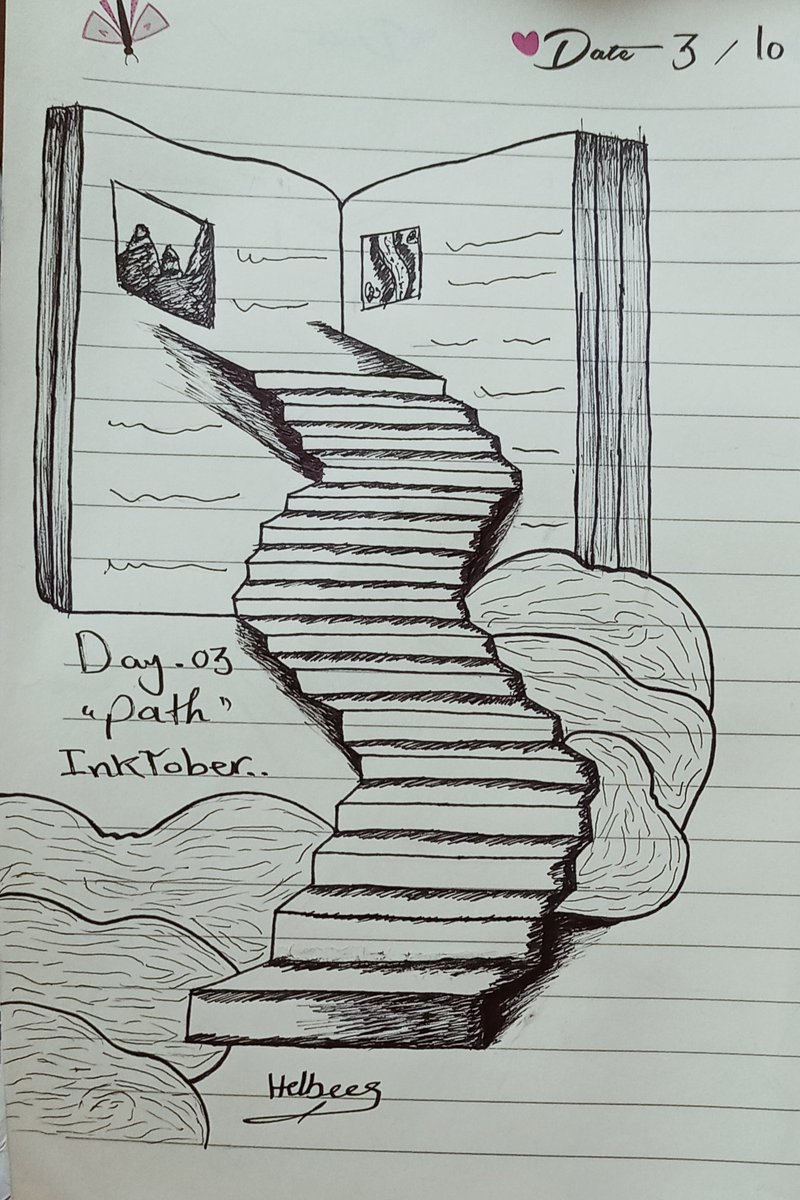 Date 3 / 10
Day.03
"path"
InkTober..
Helbees